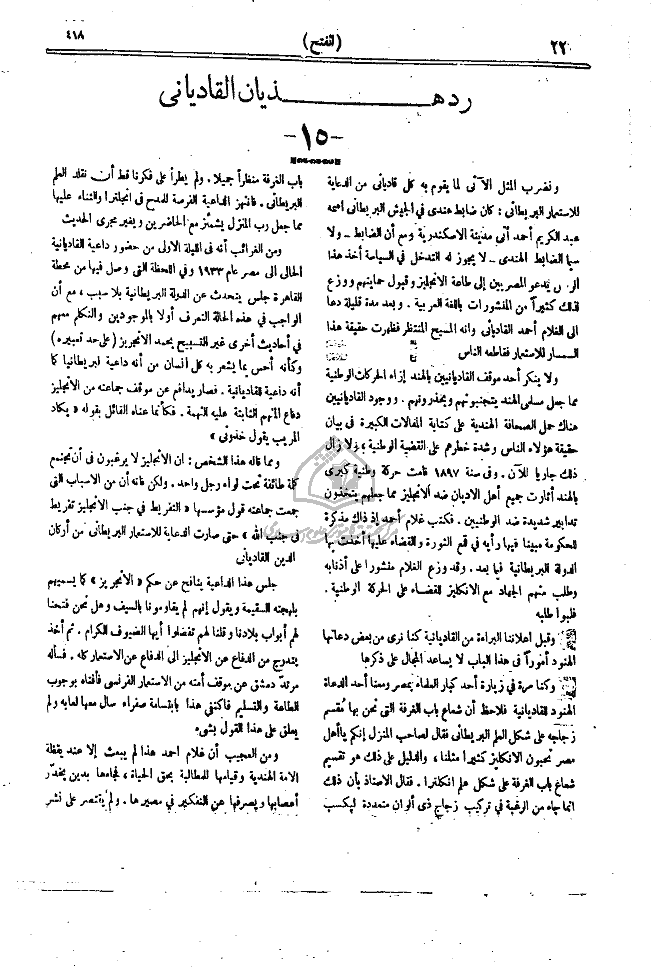 ٢٢
(الفتح)
٤١٨
رد هـذيان القاديانى
-١٥-
ونضرب المثل الآتى لما يقوم به كل قاديانى من الدعاية
للاستعمار البريطانى : كان ضابط هندى فى الجيش البريطانى اسمه
عبد الكريم أحمد أتى مدينة الاسكندرية ومع أن الضابط ــ ولا
سيما الضابط الهندى ــ لا يجوز له التدخل فى السياسة أخذ هذا
يدعو المصريين إلى طاعة الانجليز وقبول حمايتهم ووزع
لذلك كثيراً من المنشورات باللغة العربية . وبعد مدة قليلة دعا
الى الغلام أحمد القاديانى وانه المسيح المنتظر فظهرت حقيقة هذا
السمسار للاستعمار فقاطعه الناس
ولا ينكر أحد موقف القاديانيين بالهند إزاء الحركات الوطنية
مما جعل مسلمى الهند يتجنبونهم ويحذرونهم . ووجود القاديانيين
هناك حمل الصحافة الهندية على كتابة المقالات الكبيرة فى بيان
حقيقة هؤلاء الناس وشدة خطرهم على القضية الوطنية ، ولا زال
ذلك جاريا للآن . وفى سنة ١٨٩٧ قامت حركة وطنية كبرى
بالهند أثارت جميع أهل الاديان ضد الانجليز مما جعلهم يتخذون
تدابير شديدة ضد الوطنيين . فكتب غلام أحمد إذ ذاك مذكرة
للحكومة مبينا فيها رأيه فى قمع الثورة والقضاء عليها أخذت بها
الدولة البريطانية فيما بعد . وقد وزع الغلام منشورا على أذنابه
وطلب منهم الجهاد مع الانكليز للقضاء على الحركة الوطنية .
فلبوا طلبه
وقبل اعلاننا البراءة من القاديانية كنا نرى من بعض دعاتها
الهنود أموراً فى هذا الباب لا يساعد المجال على ذكرها
وكنا مرة فى زيارة أحد كبار العلماء بمصر ومعنا أحد الدعاة
الهنود للقاديانية فلاحظ أن شعاع باب الغرفة التى نحن بها مقسم
زجاجه على شكل العلم البريطانى فقال لصاحب المنزل إنكم يا أهل
مصر تحبون الانكليز كثيرا مثلنا ، والدليل على ذلك هو تقسيم
شعاع باب الغرفة على شكل علم انكلترا . فقال الاستاذ بأن ذلك
انما جاء من الرغبة فى تركيب زجاج ذى ألوان متعددة ليكسب
باب الغرفة منظراً جميلا . ولم يطرأ على فكرنا قط أن نقلد العلم
البريطانى . فانتهز الداعية الفرصة للمدح فى انجلترا والثناء عليها
مما جعل رب المنزل يشمئز مع الحاضرين ويغير مجرى الحديث
ومن الغرائب أنه فى الليلة الاولى من حضور داعية القاديانية
الحالى الى مصر عام ١٩٣٣ وفى اللحظة التى وصل فيها من محطة
القاهرة جلس يتحدث عن الدولة البريطانية بلا سبب ، مع أن
الواجب فى هذه الحالة التعرف أولا بالموجودين والتكلم معهم
فى أحاديث أخرى غير التسبيح بحمد الانجريز (على حد تعبيره)
وكأنه أحس بما يشعر به كل انسان من أنه داعية لبريطانيا كما
أنه داعية للقاديانية . فصار يدافع عن موقف جماعته من الانجليز
دفاع المتهم الثابتة عليه التهمة . فكأنما عناه القائل بقوله « يكاد
المريب يقول خذونى »
ومما قاله هذا الشخص : ان الانجليز لا يرغبون فى أن تجتمع
كلمة طائفة تحت لواء رجل واحد . ولكن فاته أن من الاسباب التى
جمعت جماعته قول مؤسسها « التفريط فى جنب الانجليز تفريط
فى جنب الله » حتى صارت الدعاية للاستعمار البريطانى من أركان
الدين القاديانى
جلس هذا الداعية ينافح عن حكم « الانجريز » كما يسميهم
بلهجته السقيمة ويقول إنهم لم يقاومونا بالسيف وهل نحن فتحنا
لهم أبواب بلادنا وقلنا لهم تفضلوا أيها الضيوف الكرام . ثم أخذ
يتدرج من الدفاع عن الانجليز الى الدفاع عن الاستعمار كله . فسأله
مرتد دمشق عن موقف أمته من الاستعمار الفرنسى فأفتاه بوجوب
الطاعة والتسليم فاكتفى هذا بابتسامة صفراء سال معها لعابه ولم
يعلق على هذا القول بشىء
ومن العجيب أن غلام احمد هذا لم يبعث إلا عند يقظة
الامة الهندية وقيامها للمطالبة بحق الحياة ، فجاءها بدين يخدر
أعصابها ويصرفها عن التفكير فى مصيرها . ولم يقتصر على نشر